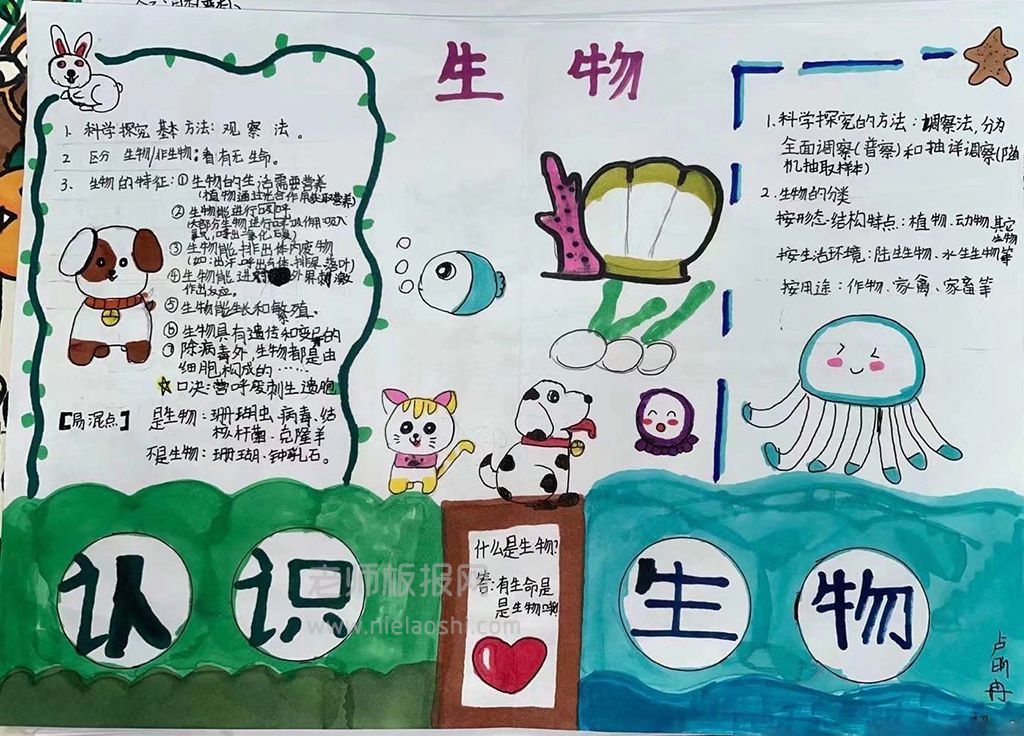 生物
1. 科学探究基本方法:观察法。
2 区分 生物/非生物:看有无生命。
3. 生物的特征:①生物的生活需要营养
(植物通过光合作用获取营养)
②生物能进行呼吸
③生物能排出体内废物
④生物能进 外界刺激
作出反应。
⑤生物能生长和繁殖。
⑥生物具有遗传和变异的
⑦除病毒外,生物都是由
细胞构成的……
☆口决:营呼废刺生遗胞
【易混点】 是生物:珊瑚虫、病毒、结
核杆菌、克隆羊
不是生物:珊瑚、钟乳石。
1.科学探究的方法:调察法,分为
全面调察(普察)和抽详调察(随
机抽取样本)
2.生物的分类
按形态结构特点:植物、动物、其它
生物
按生活环境:陆生生物、水生生物等
按用途:作物、家禽、家畜等
认识
生物
什么是生物?
答:有生命是
是生物哦
老师板报网
www.nielaoshi.com